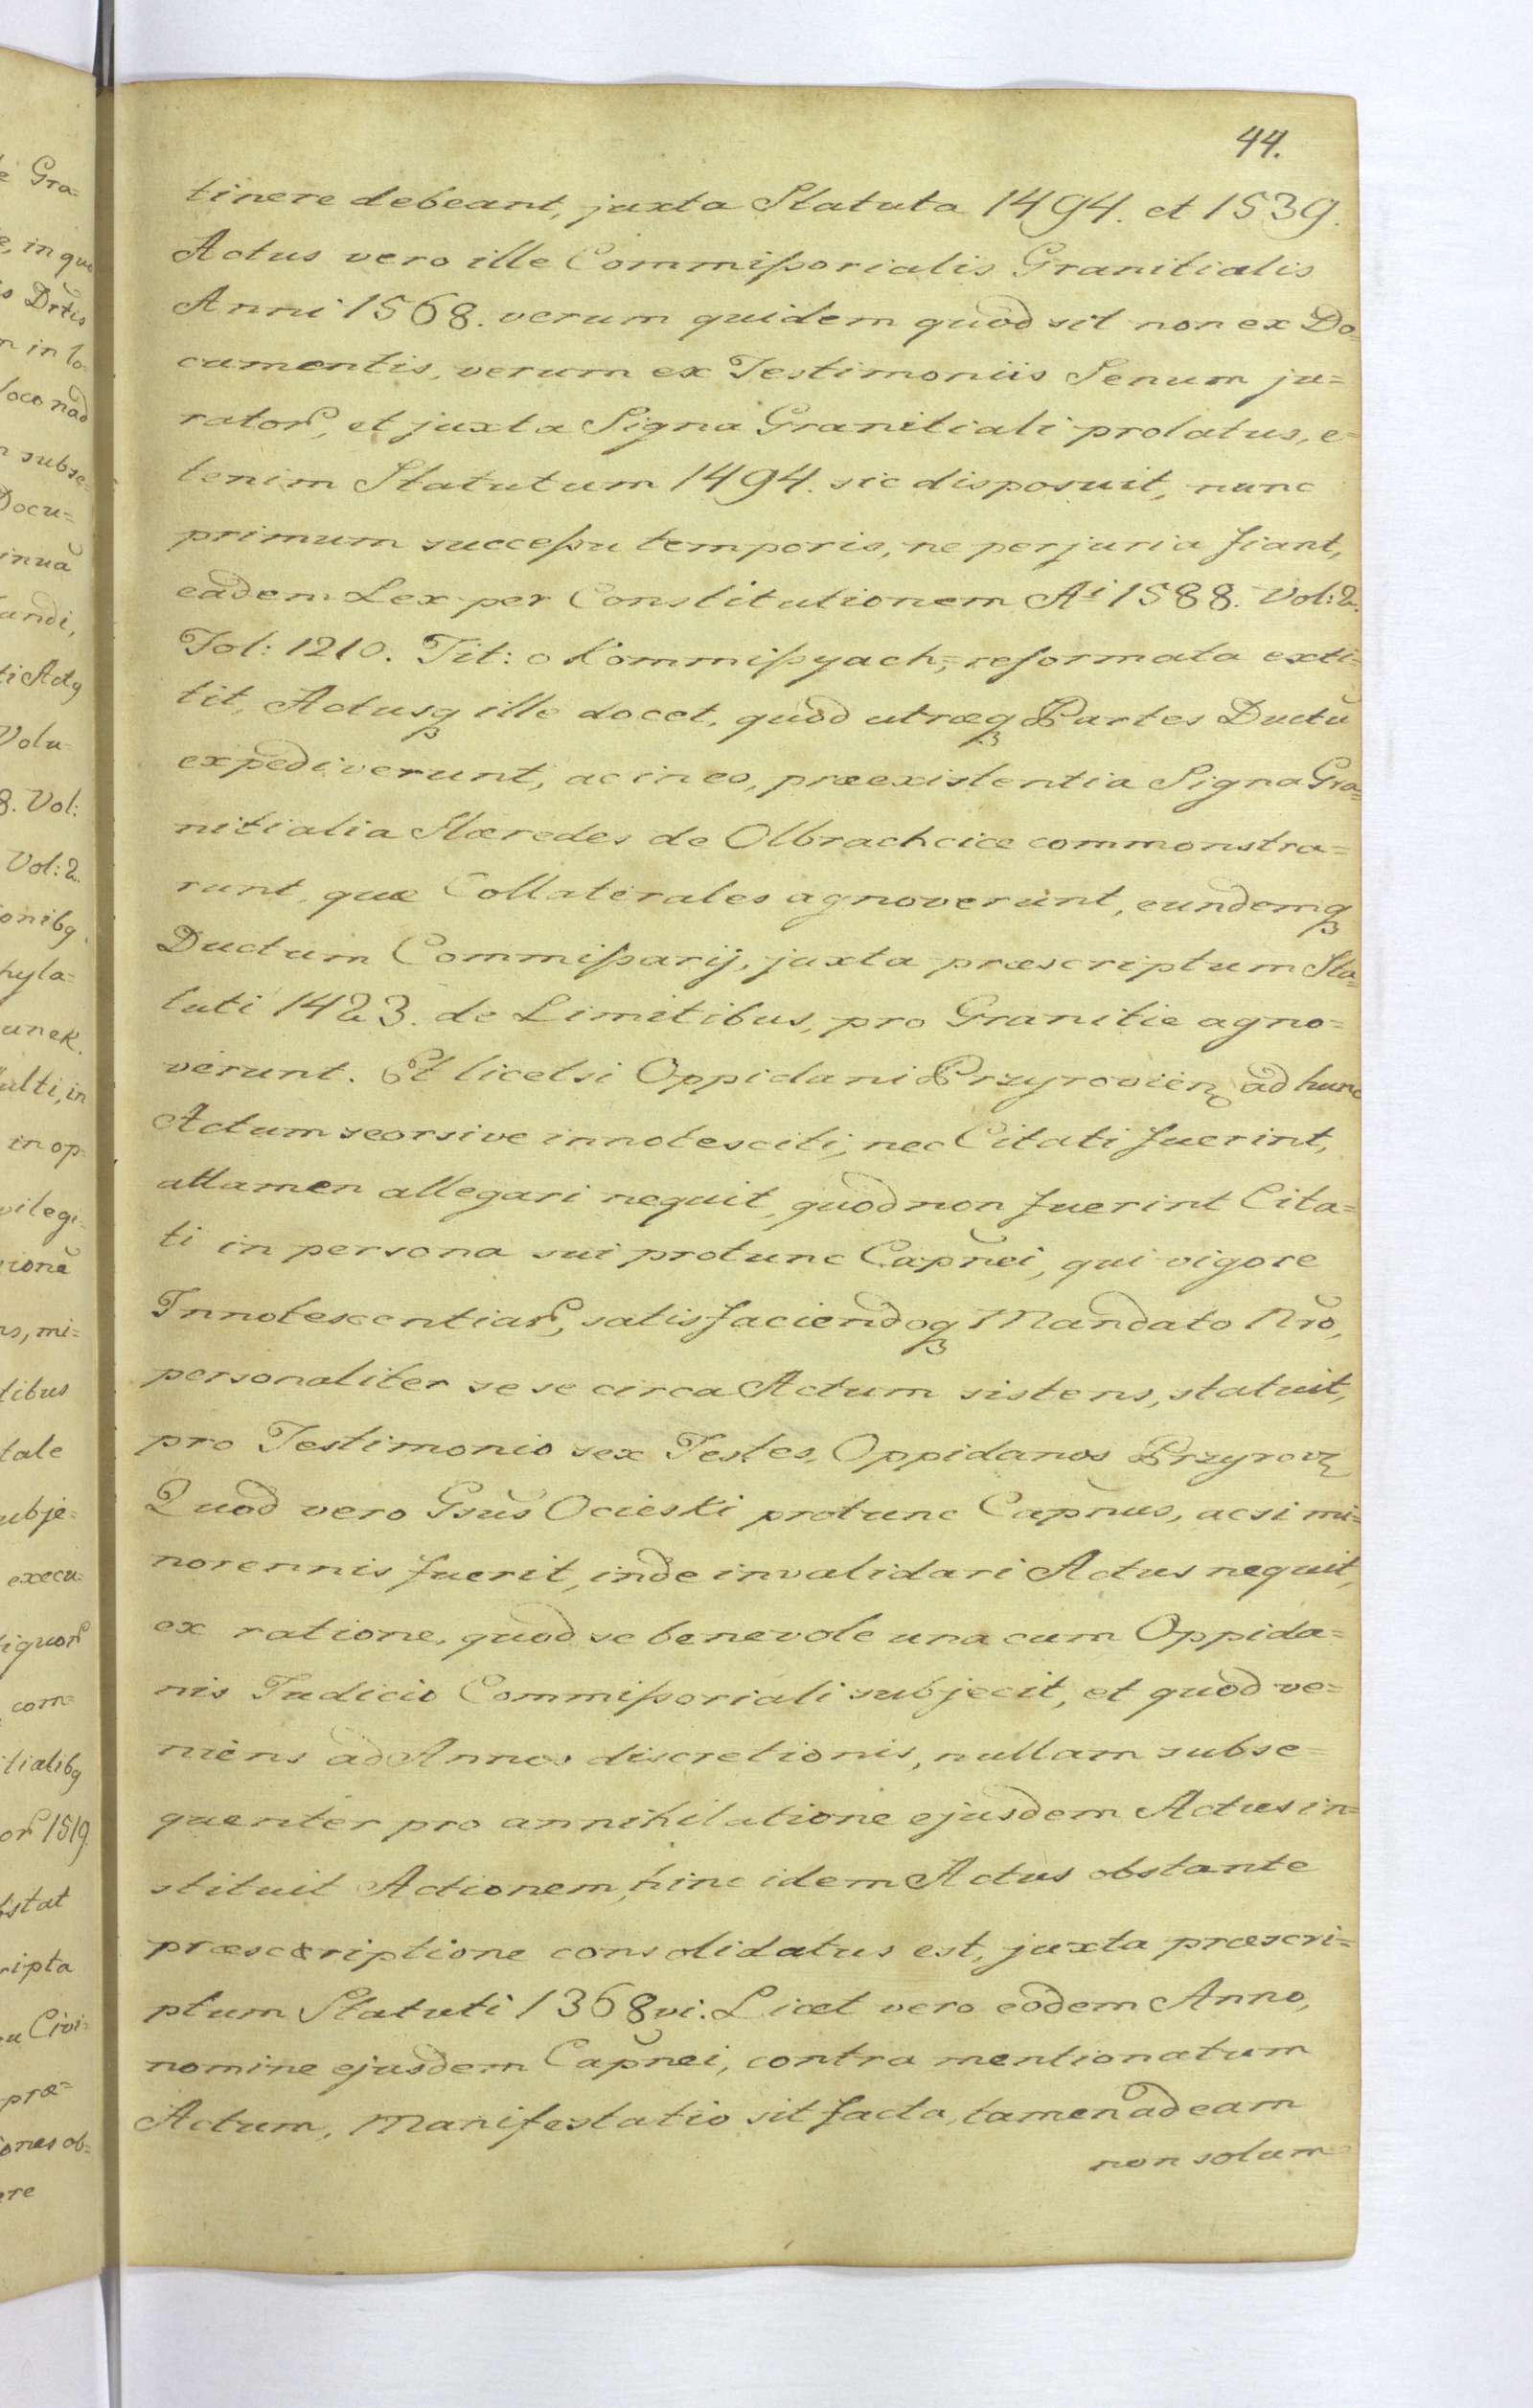 44.
tinere debeant, juxta Statuta 1494. et 1539.
Actus vero ille Commißorialis Granitialis
Anni 1568. verum quidem quod sit non ex Do=
cumentis, verum ex Testimoniis Senum ju=
rator, et juxta Signa Granitiali prolatus, e=
tenim Statutum 1494. sic disposuit, nunc
primum succeßu temporis, ne perjuria fiant,
eadem Lex per Constitutionem Ai 1588. Vol: 2.
Fol: 1210. Tit: o Kommißyach, reformata exti=
tit, Actusq ille docet, quod utræq Partes Ductū
expediverunt, ac in eo, præexistentia Signa Gra=
nitialia Hæredes de Olbrachcice commonstra=
runt, quæ Collaterales agnoverunt, eundemq
Ductum Commißarij, juxta præscriptum Sta=
tuti 1423. de Limitibus, pro Granitie agno=
verunt. Et licet si Oppidani Przyrovien ad hunc
Actum seorsive innotesciti, nec Citati fuerint,
attamen allegari nequit, quod non fuerint Cita=
ti in persona sui protunc Capñei, qui vigore
Innotescentiar, satisfaciendoq Mandato Nro,
personaliter se se circa Actum sistens, statuit,
pro Testimonio sex Testes, Oppidanos Przyrov
Quod vero Gsus Ocieski protunc Capñus, ac si mi=
norennis fuerit, inde invalidari Actus nequit,
ex ratione, quod se benevole una cum Oppida=
nis Judicio Commißoriali subjecit, et quod ve=
niens ad Annos discretionis, nullam subse=
quenter pro annihilatione ejusdem Actus in=
stituit Actionem, hinc idem Actus obstante
præscriptione consolidatus est, juxta præscri=
ptum Statuti 1368vi. Licet vero eodem Anno,
nomine ejusdem Capñei, contra mentionatum
Actum, Manifestatio sit facta, tamen ad eam
non solum